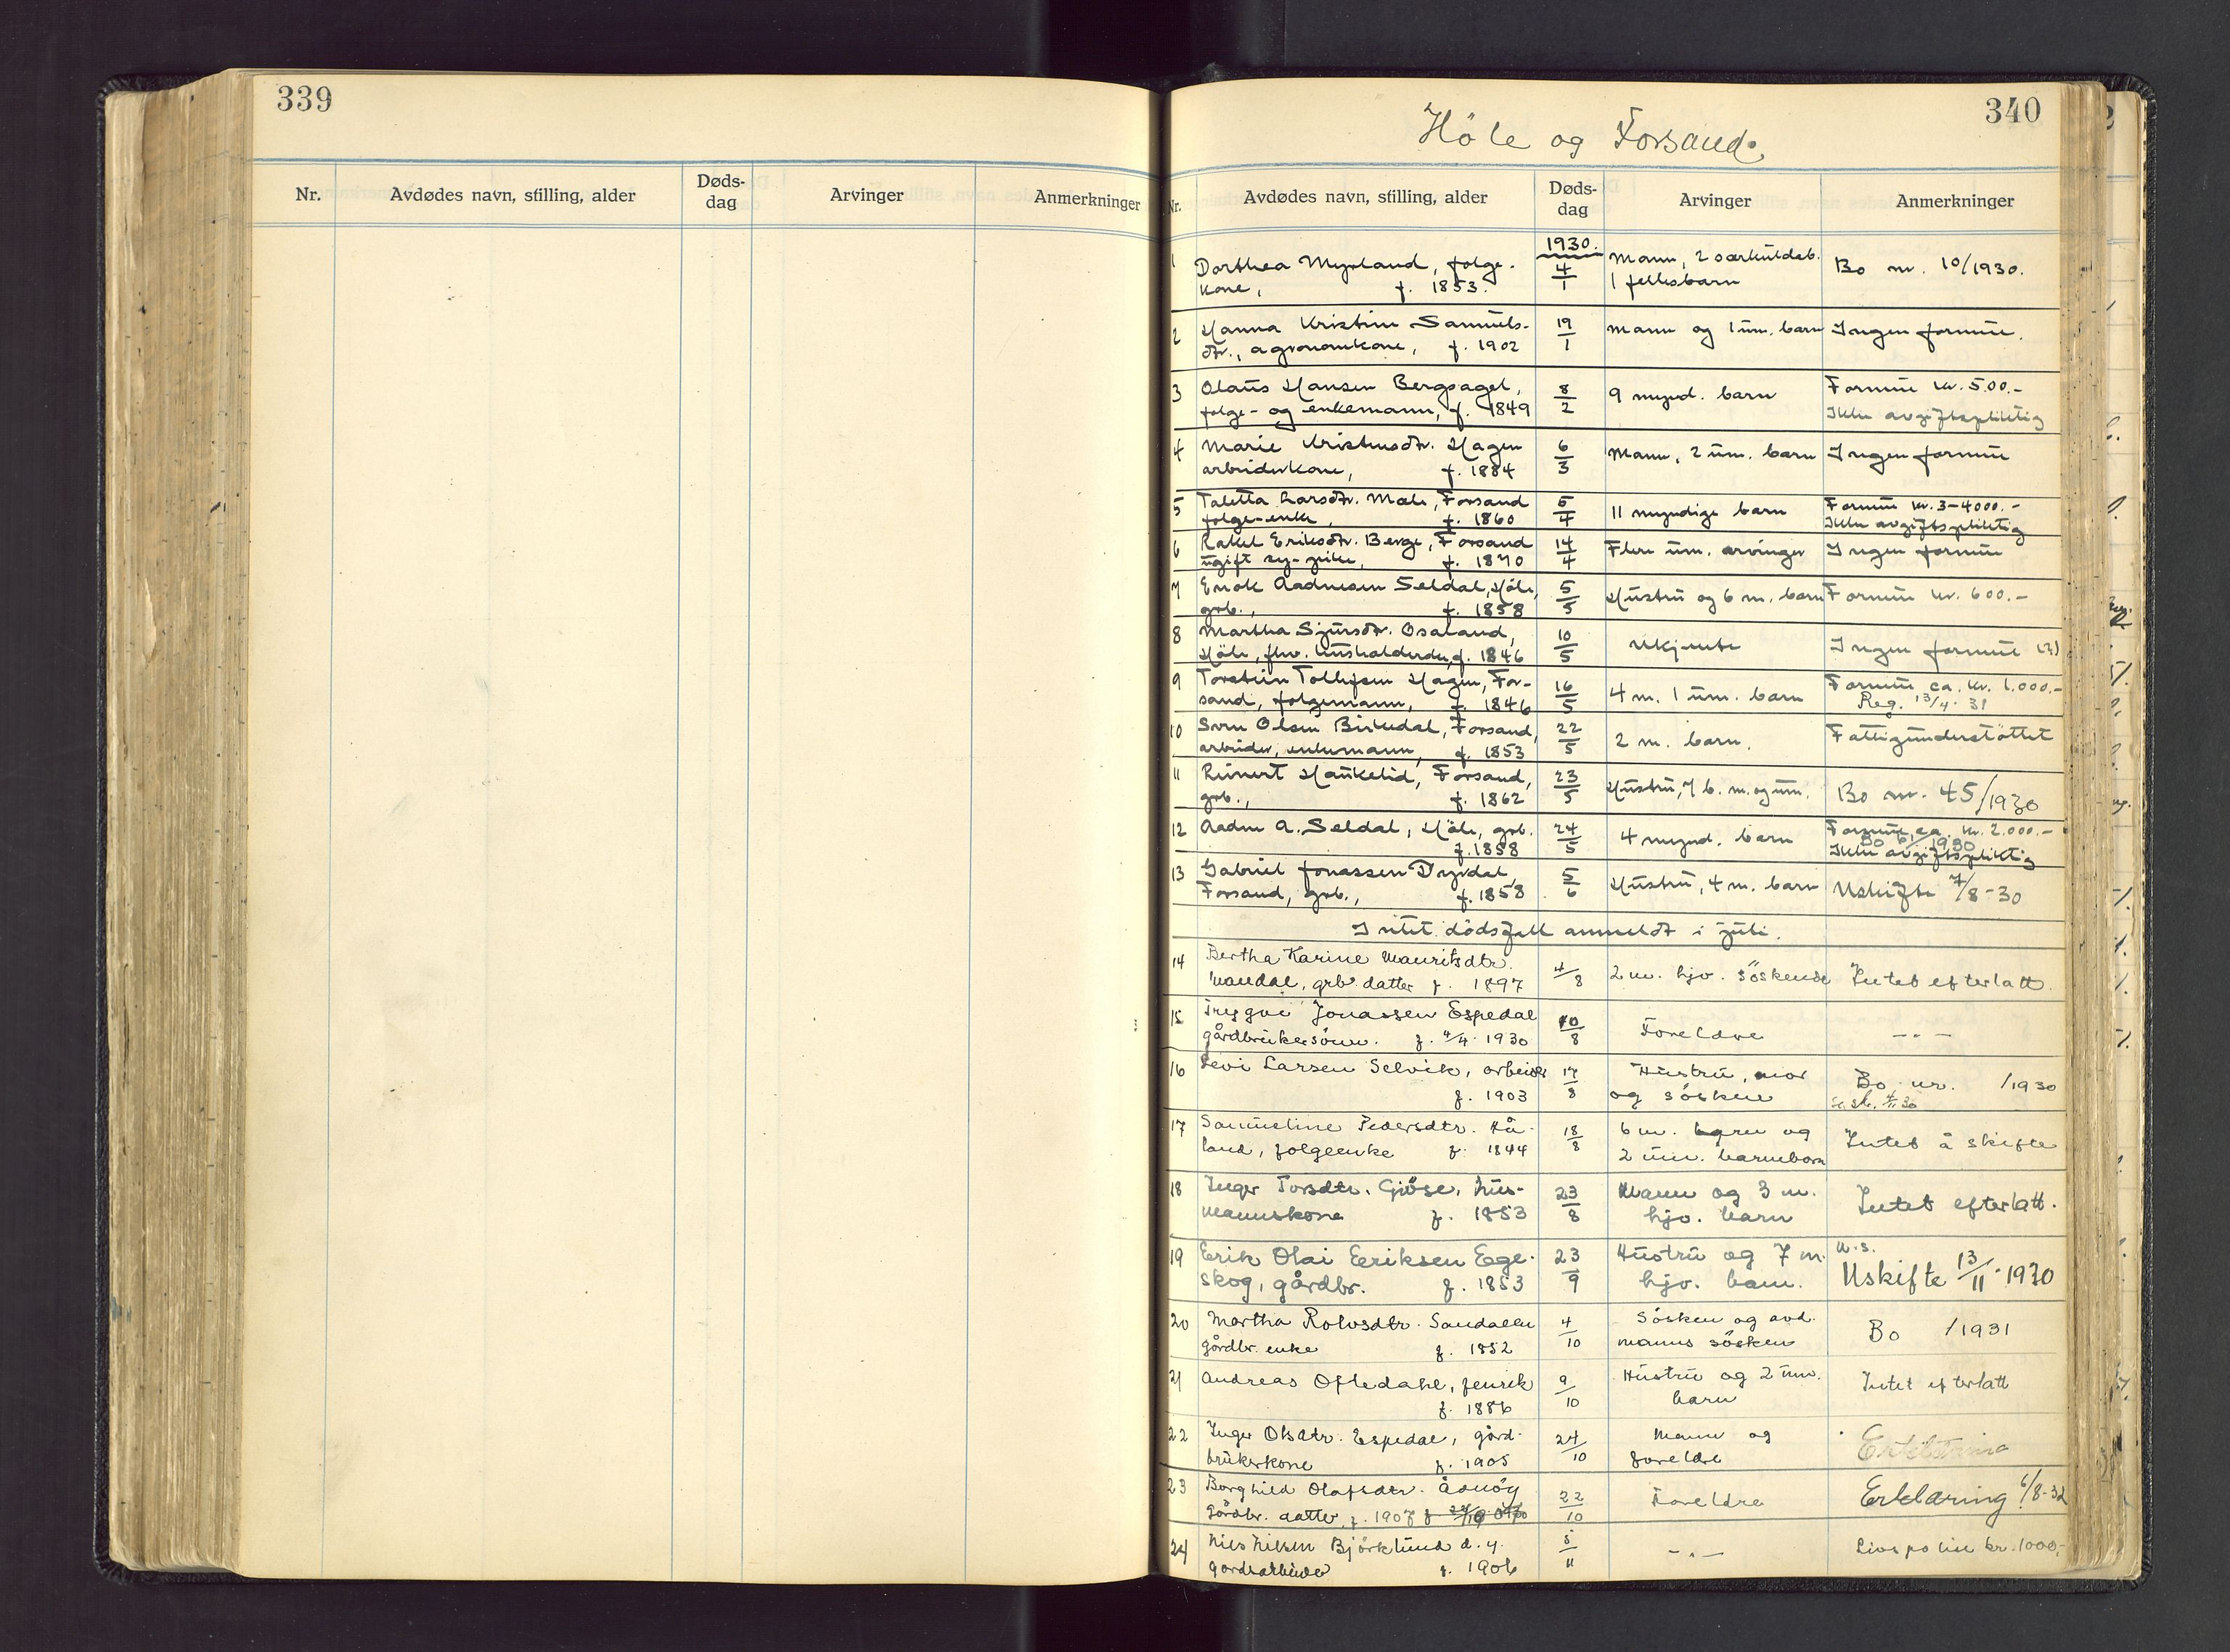 339
Nr.
Avdødes navn, stilling, alder
Døds-
dag
Arvinger
Anmerkninger
340
Höle og Forsand.
Nr.
Avdødes navn, stilling, alder
Døds-
dag
Arvinger
Anmerkninger
1930.
1 Dorthea Myrland, følge- 4/1 Mann, 2 særkuldsb. Bo nr. 10/1930.
kone, f. 1853. 1 fellesbarn
2 Hanna Kristine Samuels- 19/1 Mann og 1 um. barn Ingen formue.
dtr., agronomkone, f. 1902
3 Olaus Hansen Bergsagel, 8/2 9 mynd. barn Formue kr. 500.-
følge- og enkemann, f. 1849 Ikke avgiftspliktig
4 Marie Kristensdtr. Hagen 6/3 Mann, 2 um. barn Ingen formue
arbeiderkone, f. 1884
5 Taletta Larsdtr. Mæle, Forsand 5/4 11 myndige barn Formue kr. 3-4000.-
følge-enke, f. 1860 Ikke avgiftspliktig
6 Rakel Eriksdtr. Berge, Forsand 14/4 Flere um. arvinger Ingen formue
ugift sy-pike, f. 1870
7 Enok Aadnesen Seldal, Höle, 5/5 Hustru og 6 m. barn Formue kr. 600.-
grb., f. 1858
8 Martha Sjursdtr. Osaland, 10/5 Ukjente Ingen formue
Höle, fhv. husholderske, f. 1846
9 Torstein Tollefsen Hagen, For- 16/5 4 m. 1 um. barn Formue ca. kr. 1.000.-
sand, følgemann, f. 1846 Reg. 13/4 31
10 Sven Olsen Birkedal, Forsand, 22/5 2 m. barn. Fattigunderstöttet
arbeider, enkemann, f. 1853
11 Reinert Haukelid, Forsand, 23/5 Hustru, 7 b. m. og um. Bo nr. 45/1930
grb., f. 1862
12 Aadne A. Seldal, Höle, grb. 24/5 4 mynd. barn Formue ca. kr. 2.000.-
f. 1858 Ikke avgiftspliktig
13 Gabriel Jonassen Dyrdal, 5/6 Hustru, 4 m. barn Uskifte 7/8-30
Forsand, grb., f. 1858
Intet dödsfall anmeldt i juli.
14 Bertha Karine Mauritsdtr. 4/8 2 m. hjv. söskende Intet efterlatt.
Mandal, grb datter f. 1897
15 Trygve Jonassen Espedal 10/8 Foreldre - " -
gårdbrukersönn. f. 4/4 1930
16 Levi Larsen Selvik, arbeider 17/8 Hustru, mor Bo nr. /1930
f. 1903 og sösken
17 Samueline Pedersdtr. Hå- 18/8 6 m. barn og Intet å skifte
land, folgeenke f. 1844 2 um. barnebarn
18 Inger Torsdtr. Gjöse, hus- 23/8 Mann og 3 m. Intet efterlatt.
mannskone f. 1853 hjv. barn
19 Erik Olai Eriksen Ege- 23/9 Hustru og 7 m. u.s.
skog, gårdbr. f. 1853 hjv. barn. Uskifte 13/11-1930
20 Martha Rolvsdtr. Sandalen 4/10 Sösken og avd. Bo /1931
gårdbr. enke f. 1852 manns sösken
21 Andreas Oftedahl, fenrik 9/10 Hustru og 2 um. Intet efterlatt
f. 1886 barn
22 Inger Olsdtr. Espedal, gård- 24/10 Mann og
brukerkone f. 1905 foreldre
23 Borghild Olafsdtr. Ådnöy 22/10 Foreldre Erklæring 6/8-32
Gårdbr. datter, f. 1907
24 Nils Nilsen Björklund d.y. 5/11 - " - Livspolise kr. 1000,-
gårdsarbeider f. 1906